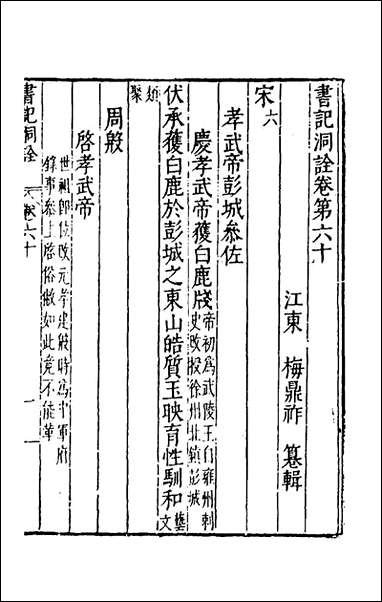 書記洞詮卷第六十
江東 梅鼎祚 纂輯
宋六
孝武帝彭城叅佐
慶孝武帝獲白鹿牋帝初爲武陵王自雍州刺
史改授徐州北鎮彭城
伏承獲白鹿於彭城之東山皓質玉映育性馴和藝文
類聚
周殷
啓孝武帝
世祖即位改元孝建殷時爲中軍府
錄事叅上啓俗敝如此竟不能革
書記洞詮 卷六十 一